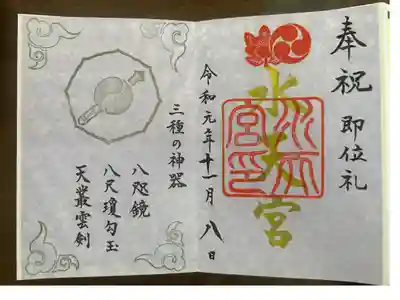 奉祝 即位礼
水天宮
水天宮印
令和元年十一月八日
三種の神器
八咫鏡
八尺瓊勾玉
天叢雲剣